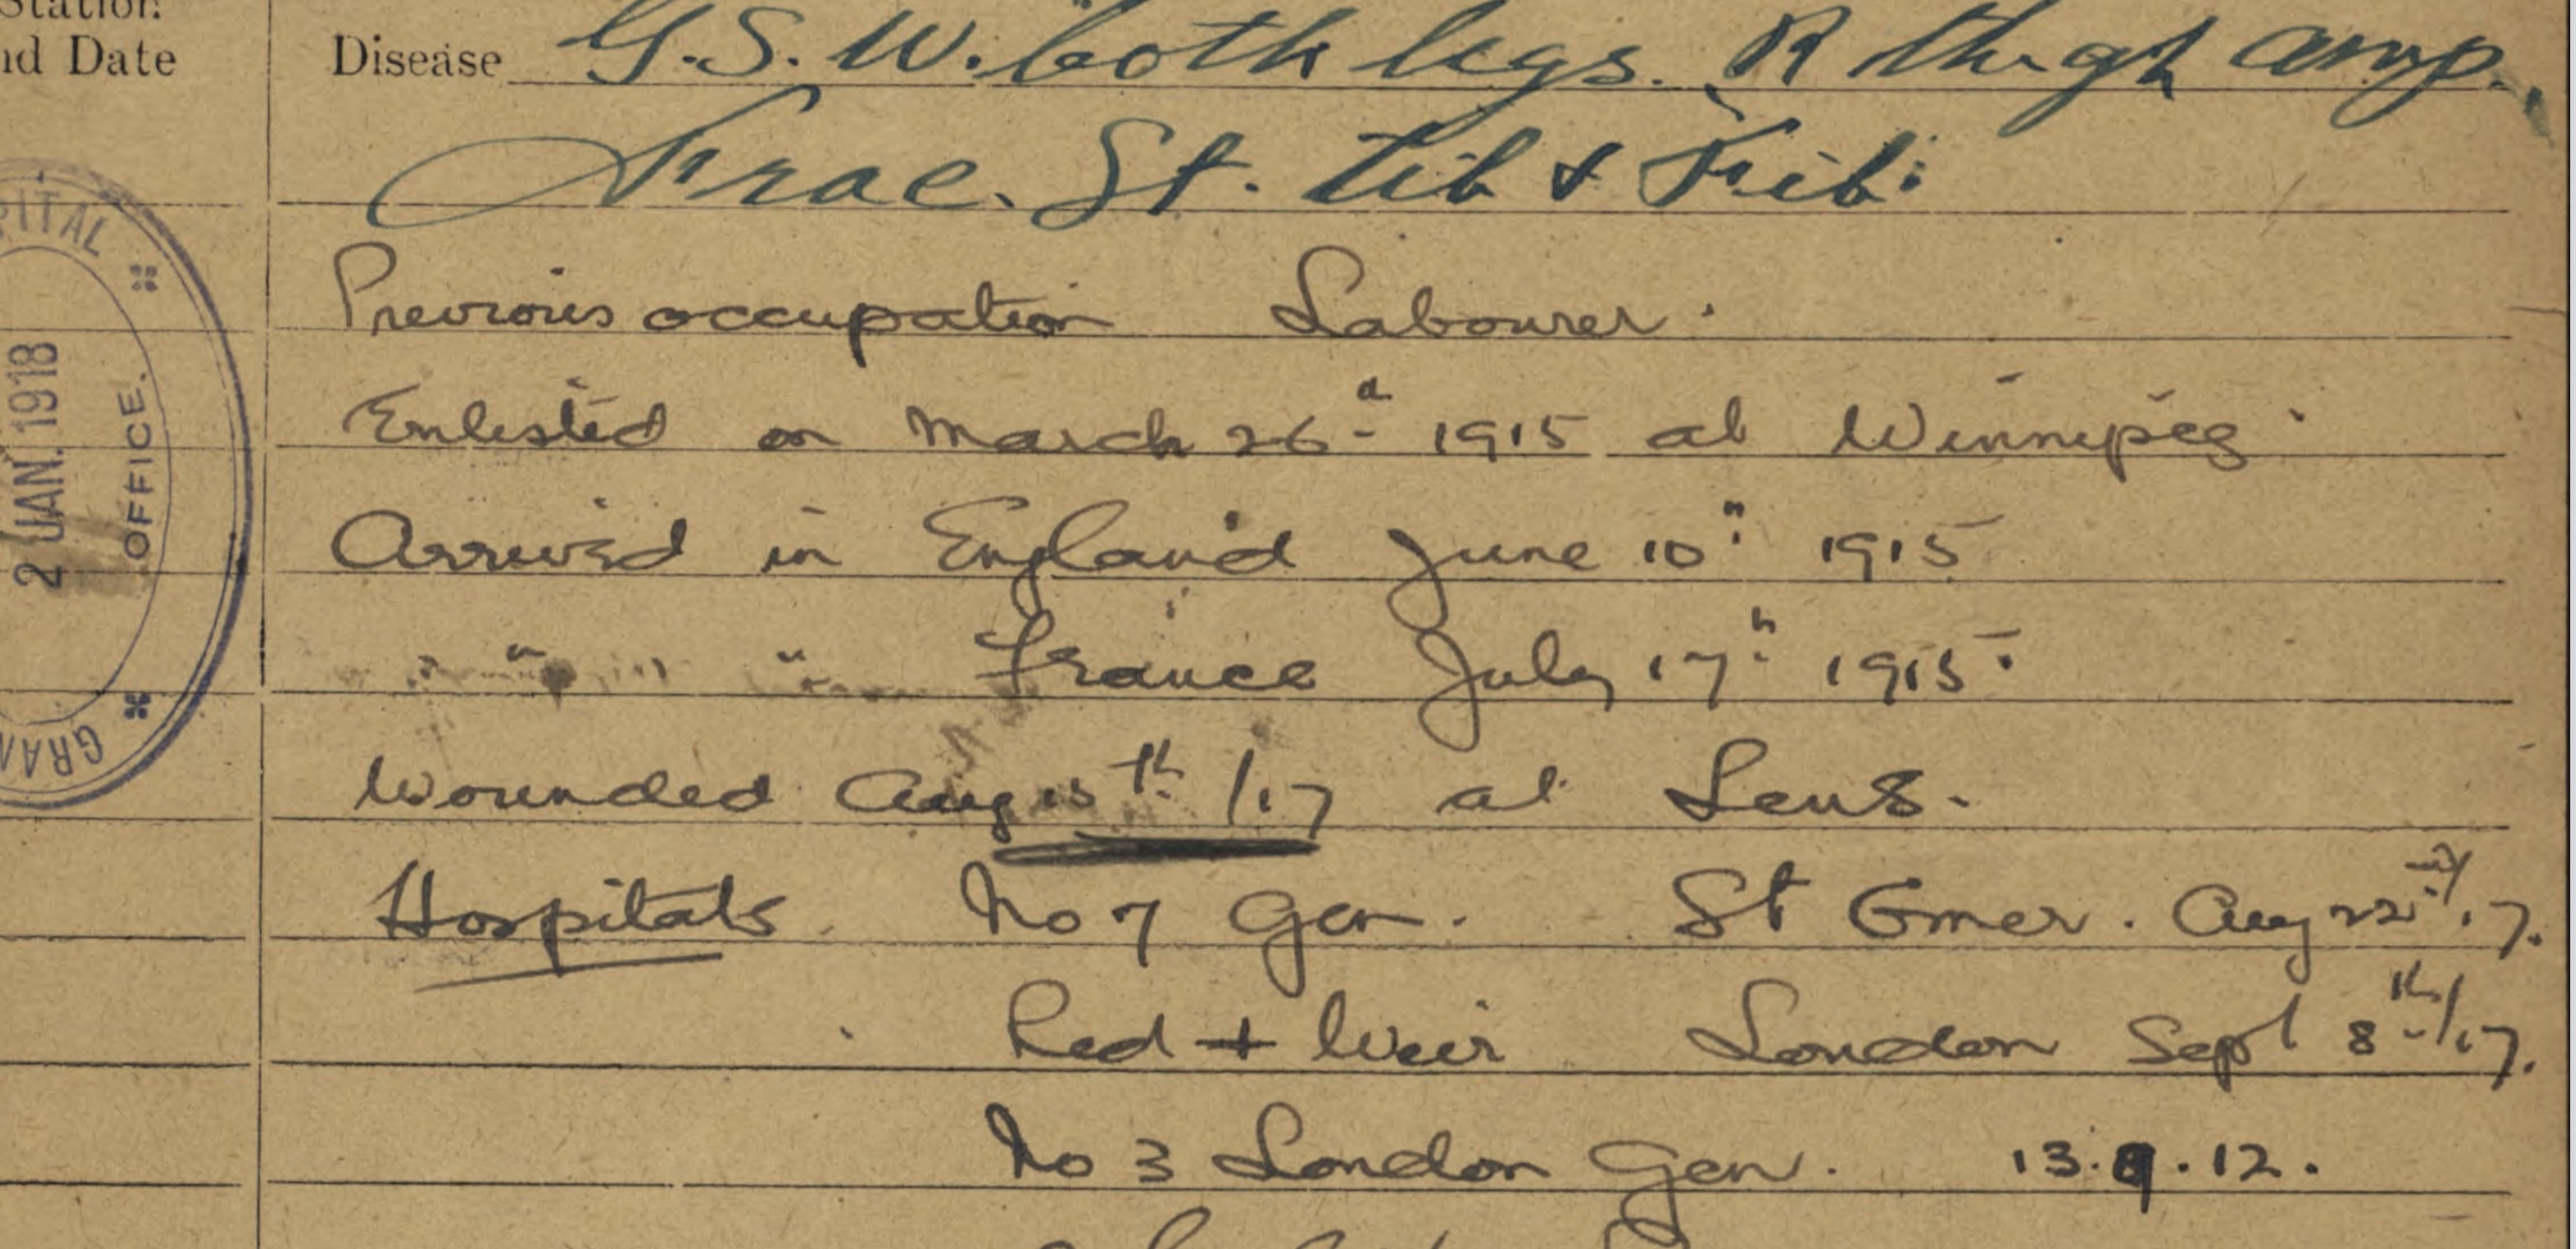 Station
nd Date
Disease G.S.W. both legs. R thigh amp.
Frac. St. tib & Fib:
PITAL
2 JAN. 1918
OFFICE.
GRAN
Previous occupation Labourer.
Enlisted on March 26th 1915 at Winnipeg.
Arrived in England June 10th 1915
" " France July 17th 1915.
Wounded Aug 15th /17 at Lens.
Hospitals No 7 Gen. St Omer. Aug 22nd/17.
Red + Weir London Sept 8th/17.
No 3 London Gen. 13.9.12.